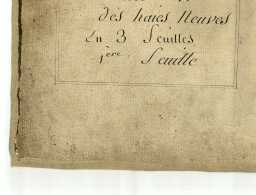 des haies Neuves
En 3 Feuilles
1ère Feuille